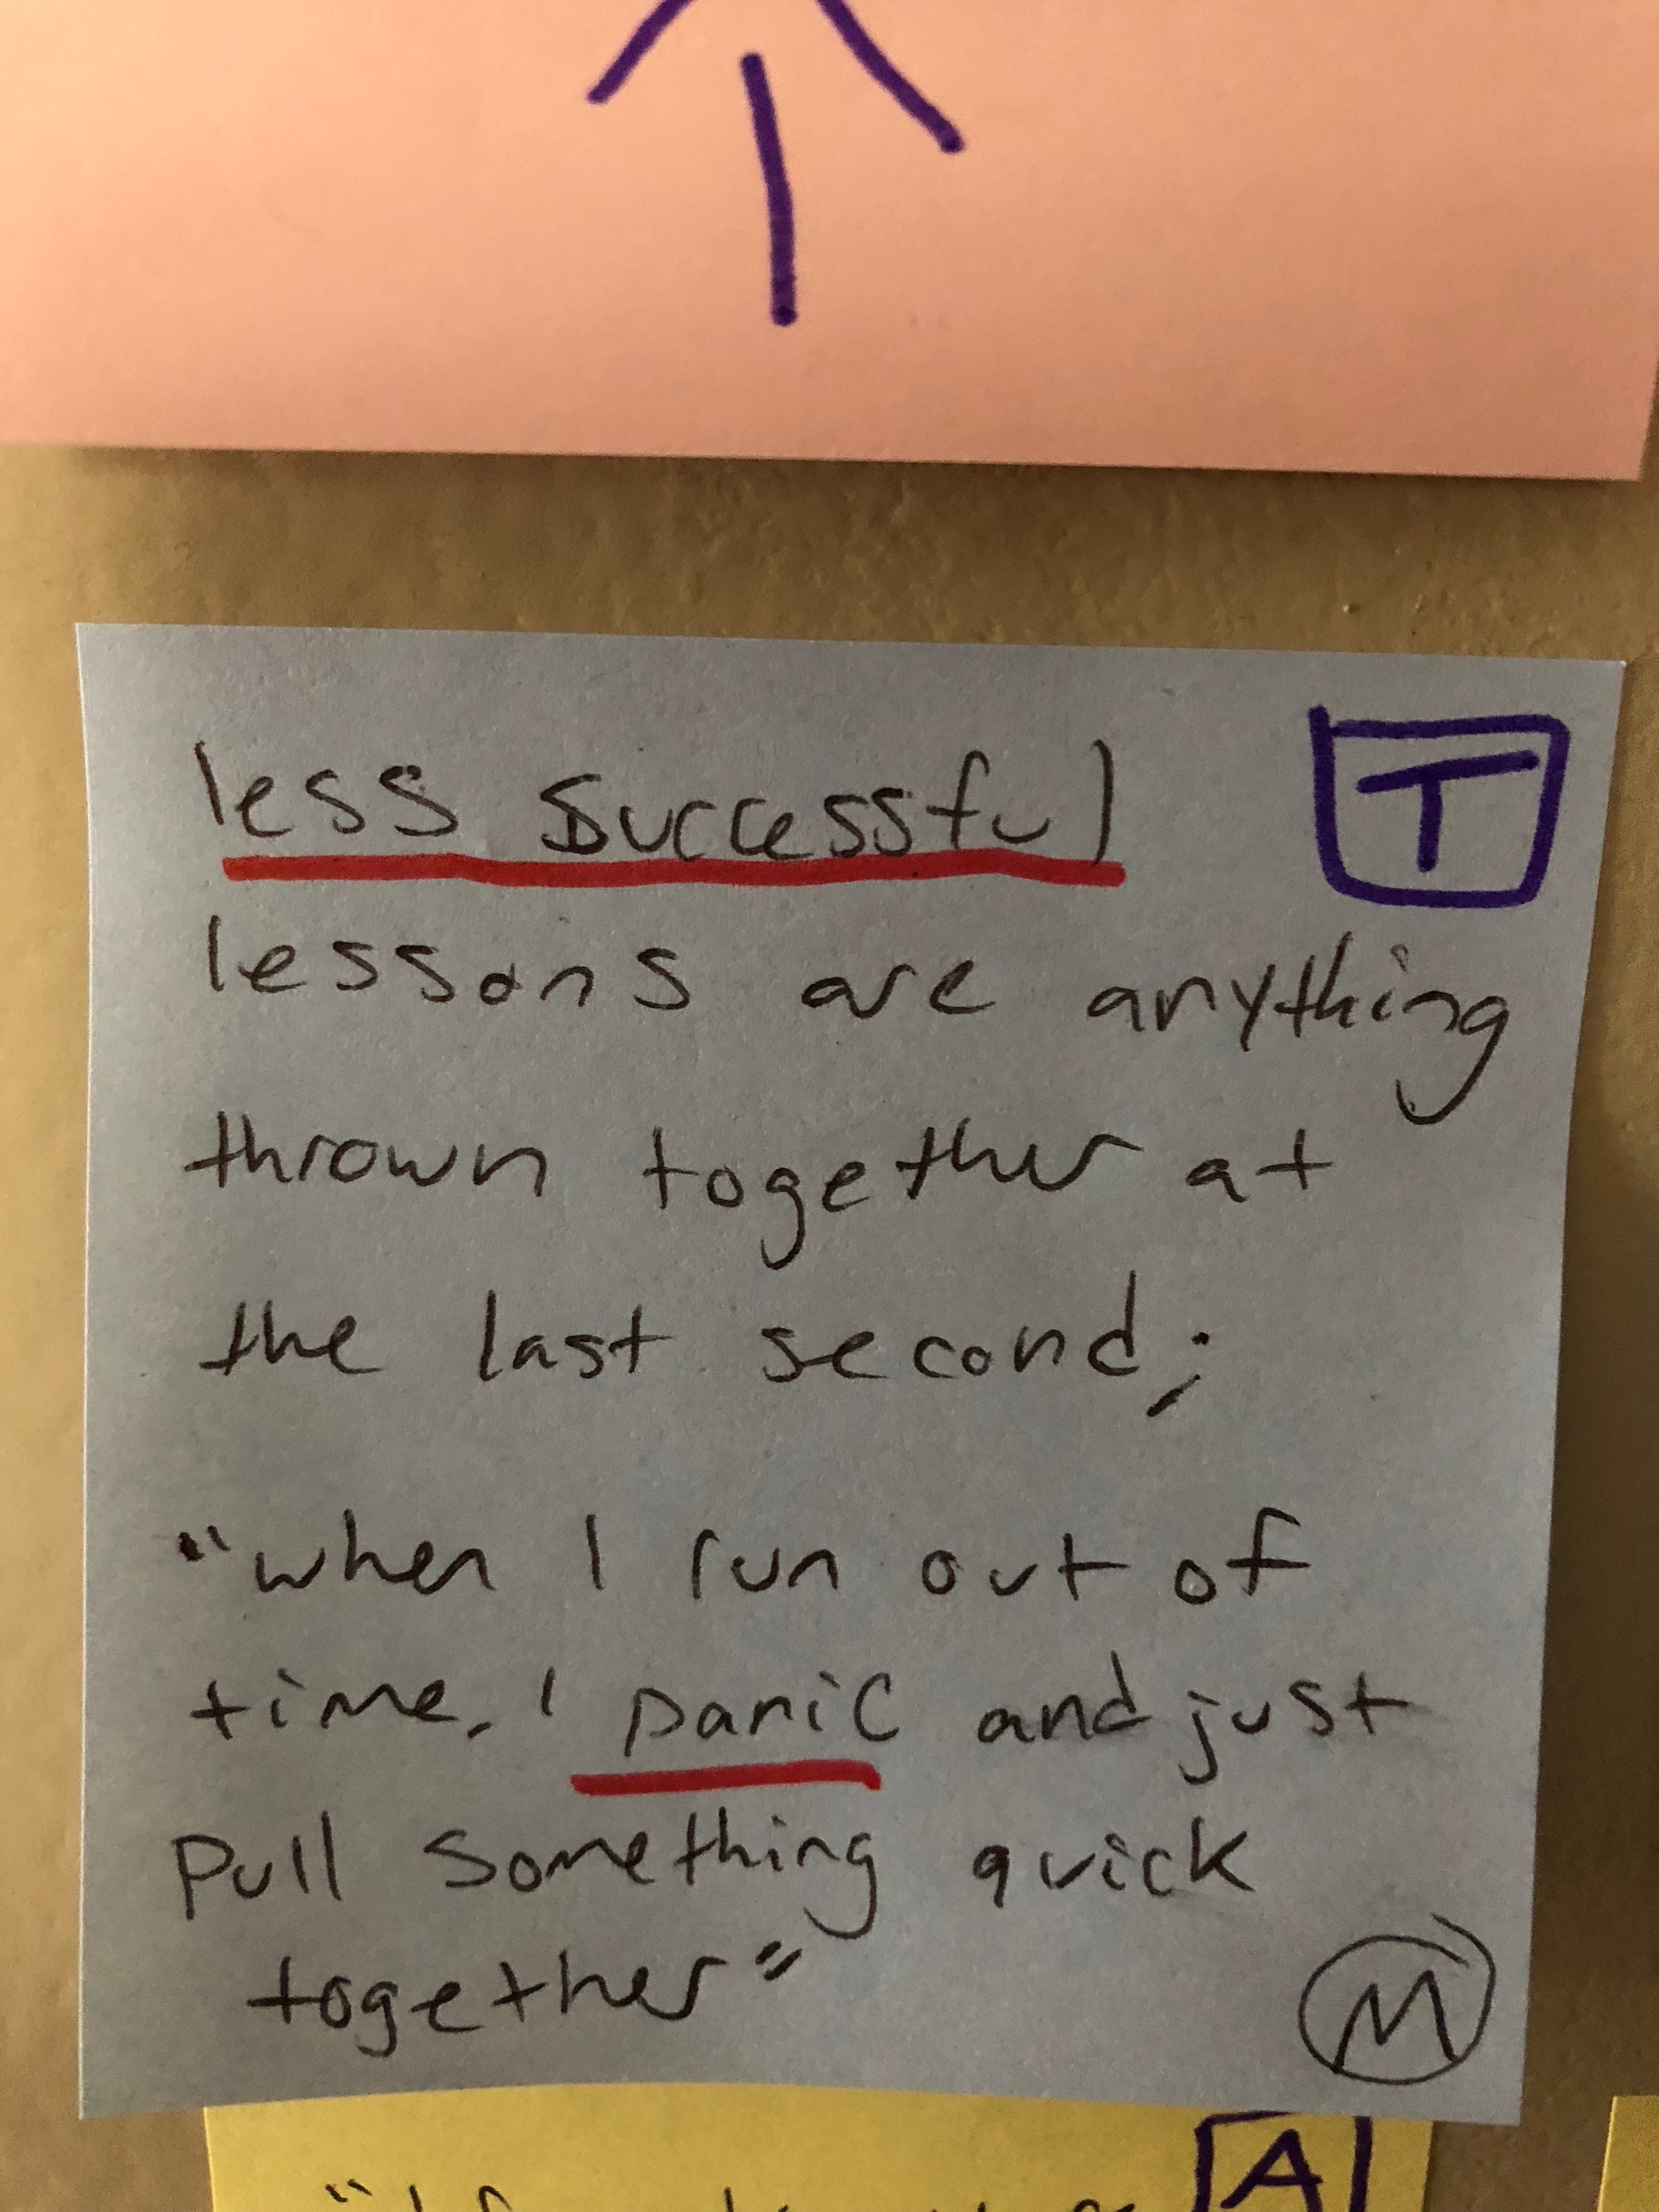 less successful
T
lessons are anything
thrown together at
the last second;
"when I run out of
time, I panic and just
pull something quick
together"
M
A